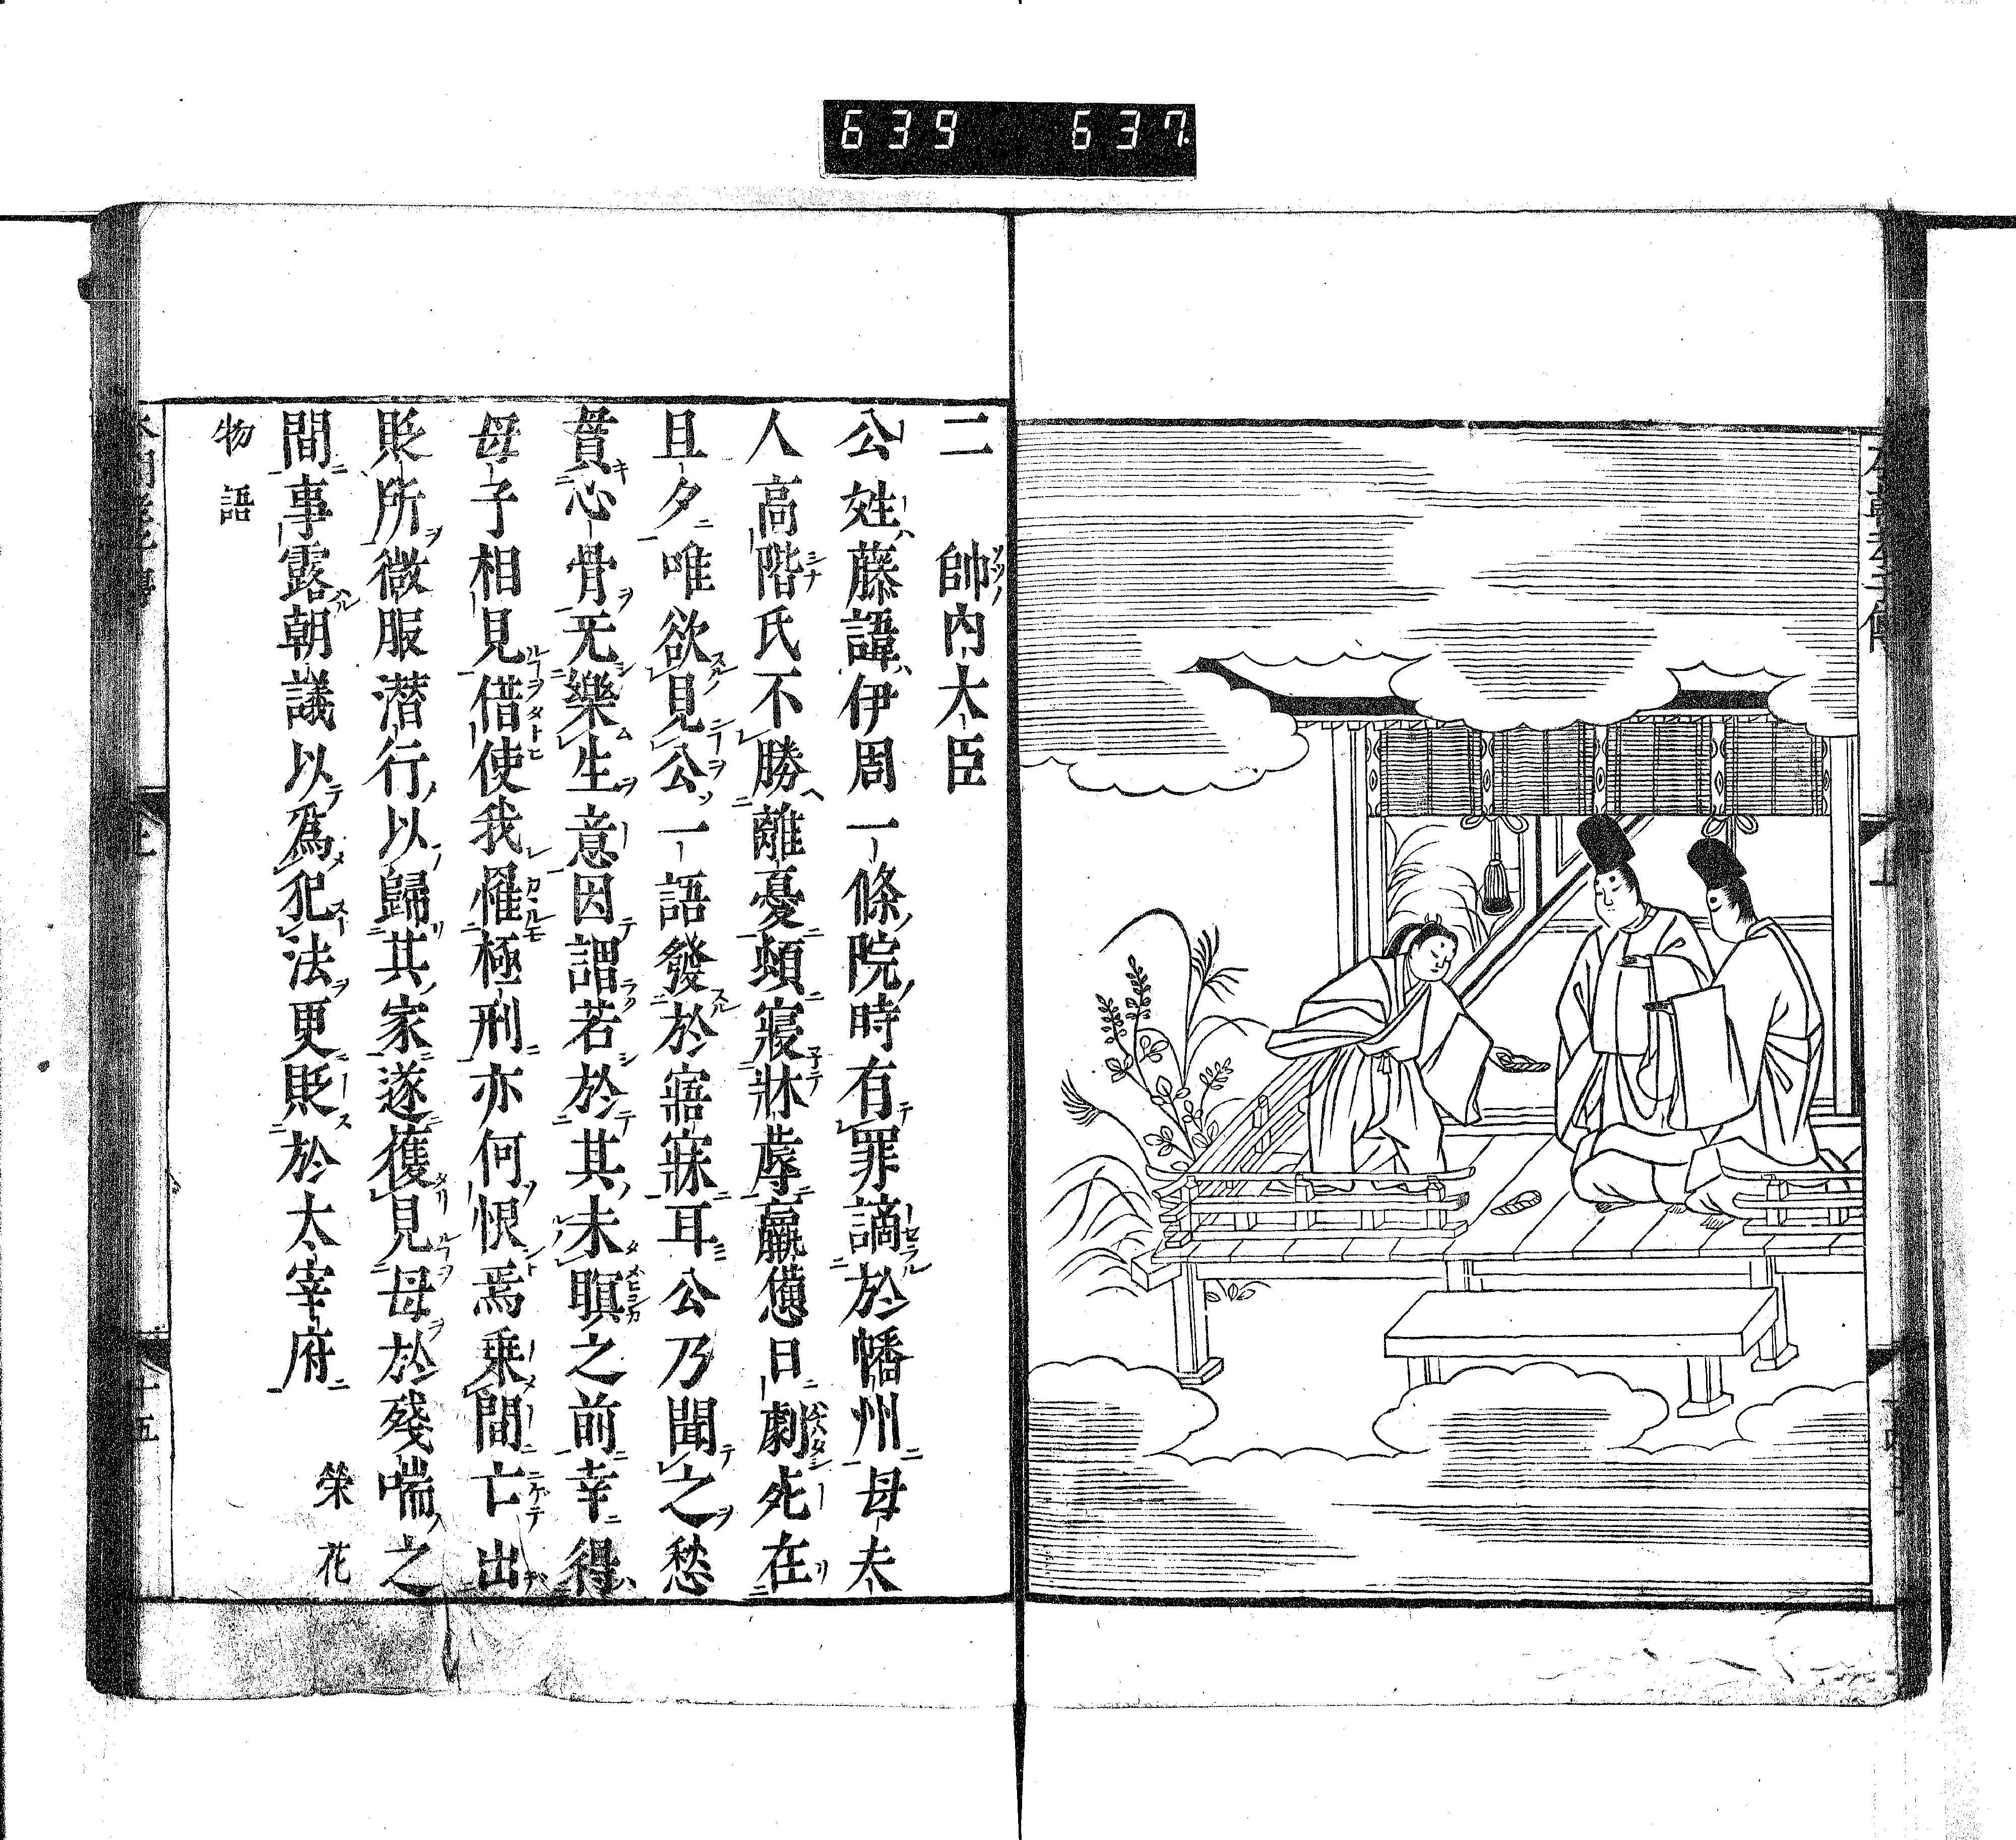 639 637
二 帥内大臣
公姓藤諱伊周一條院時有罪謫於幡州母夫
人高階氏不勝離憂頓寢牀蓐羸憊日劇死在
且夕唯欲見公一語發於寤寐耳公乃聞之愁
貫心骨无樂生意因謂若於其未暝之前幸得
母子相見借使我罹極刑亦何恨焉乗間亡出
貶所微服潜行以歸其家遂獲見母於殘喘之
間事露朝議以爲犯法更貶於太宰府 榮花
物語
上
十五